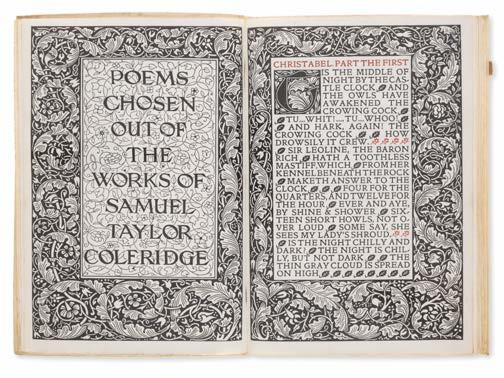 POEMS
CHOSEN
OUT OF
THE
WORKS OF
SAMUEL
TAYLOR
COLERIDGE
CHRISTABEL. PART THE FIRST
IS THE MIDDLE OF
NIGHT BY THE CAS-
TLE CLOCK, AND
THE OWLS HAVE
AWAKENED THE
CROWING COCK,
TU...WHIT!....TU...WHOO!
AND HARK, AGAIN! THE
CROWING COCK, HOW
DROWSILY IT CREW.
SIR LEOLINE, THE BARON
RICH, HATH A TOOTHLESS
MASTIFF, WHICH FROM HER
KENNEL BENEATH THE ROCK
MAKETH ANSWER TO THE
CLOCK, FOUR FOR THE
QUARTERS, AND TWELVE FOR
THE HOUR, EVER AND AYE,
BY SHINE & SHOWER, SIX-
TEEN SHORT HOWLS, NOT O-
VER LOUD, SOME SAY, SHE
SEES MY LADY'S SHROUD.
IS THE NIGHT CHILLY AND
DARK? THE NIGHT IS CHIL-
LY, BUT NOT DARK. THE
THIN GRAY CLOUD IS SPREAD
ON HIGH,